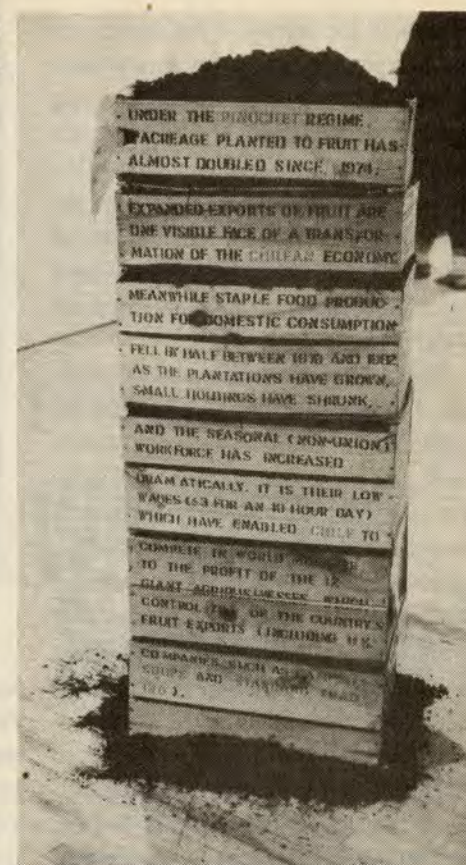 UNDER THE PINOCHET REGIME,
ACREAGE PLANTED TO FRUIT HAS
ALMOST DOUBLED SINCE 1974.
EXPANDED EXPORTS OF FRUIT ARE
ONE VISIBLE FACE OF A TRANSFOR-
MATION OF THE CHILEAN ECONOMY
MEANWHILE STAPLE FOOD PRODUC-
TION FOR DOMESTIC CONSUMPTION
FELL IN HALF BETWEEN AND
AS THE PLANTATIONS HAVE GROWN,
SMALL HOLDINGS HAVE SHRUNK,
AND THE SEASONAL (NON-UNION)
WORKFORCE HAS INCREASED
DRAMATICALLY. IT IS THEIR LOW
WAGES ($3 FOR AN 10 HOUR DAY)
WHICH HAVE ENABLED CHILE TO
COMPETE IN WORLD
TO THE PROFIT OF THE 12
GIANT AGRIBUSINESSES WHICH
CONTROL OF THE COUNTRY'S
FRUIT EXPORTS (INCLUDING U.S.
COMPANIES SUCH AS
AND STANDARD